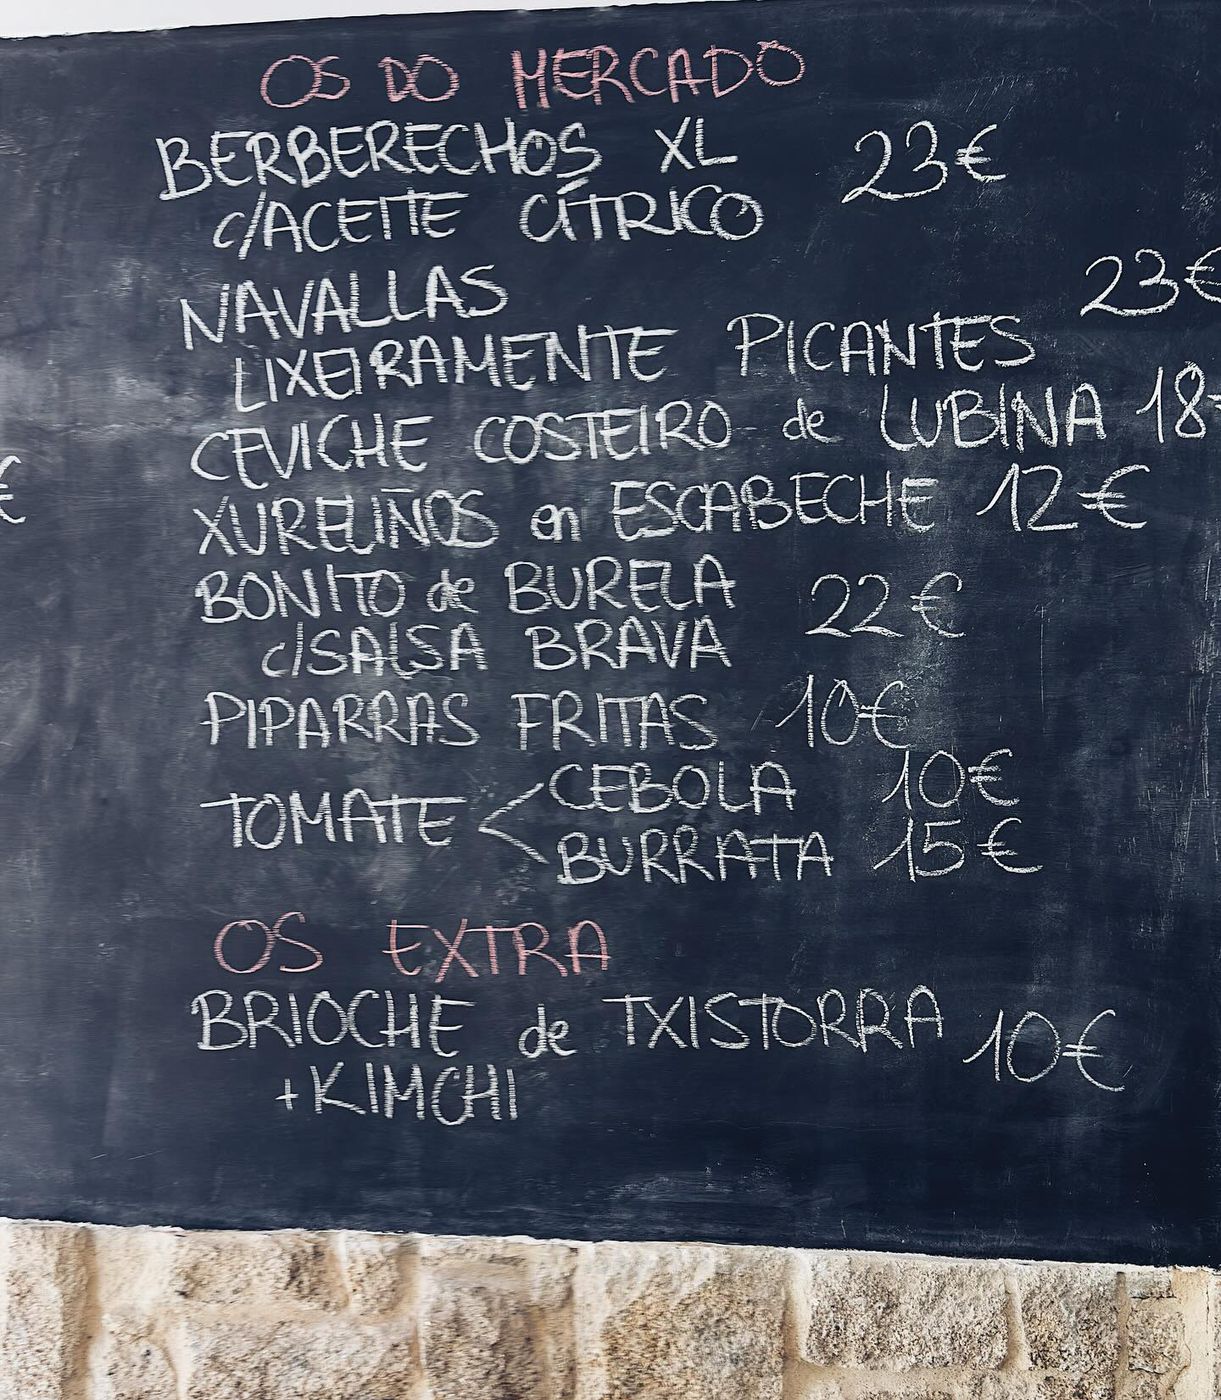 OS DO MERCADO
BERBERECHOS XL 23€
c/ACEITE CÍTRICO
NAVALLAS 23€
LIXEIRAMENTE PICANTES
CEVICHE COSTEIRO de LUBINA 18
XURELIÑOS en ESCABECHE 12€
BONITO de BURELA 22€
c/SALSA BRAVA
PIPARRAS FRITAS 10€
TOMATE < CEBOLA 10€
BURRATA 15€
OS EXTRA
BRIOCHE de TXISTORRA 10€
+KIMCHI
€